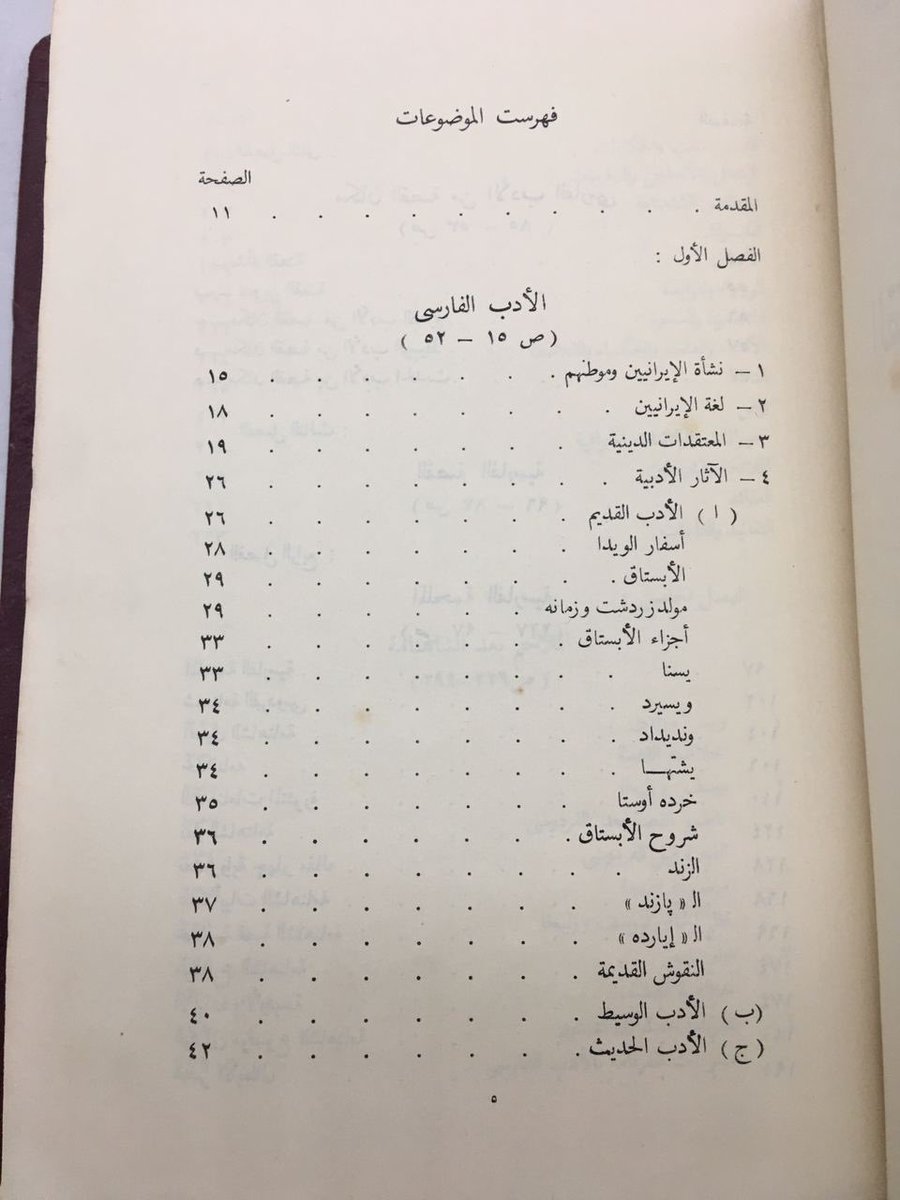 فهرست الموضوعات
الصفحة
المقدمة . . . . . . . . . . ١١
الفصل الأول :
الأدب الفارسى
( ص ١٥ — ٥٢ )
١ — نشأة الإيرانيين وموطنهم . . . . . . . ١٥
٢ — لغة الإيرانيين . . . . . . . . ١٨
٣ — المعتقدات الدينية . . . . . . . ١٩
٤ — الآثار الأدبية . . . . . . . . ٢٦
( ا ) الأدب القديم . . . . . . . ٢٦
أسفار الويدا . . . . . . . ٢٨
الأبستاق . . . . . . . . ٢٩
مولد زردشت وزمانه . . . . . . ٢٩
أجزاء الأبستاق . . . . . . . ٣٣
يسنا . . . . . . . ٣٣
ويسپرد . . . . . . . . ٣٤
ونديداد . . . . . . . . ٣٤
يشتهـا . . . . . . . . ٣٤
خرده أوستا . . . . . . ٣٥
شروح الأبستاق . . . . . . . ٣٦
الزند . . . . . . . . ٣٦
الـ « پازند » . . . . . . . ٣٧
الـ « إيارده » . . . . . . . ٣٨
النقوش القديمة . . . . . . . ٣٨
(ب) الأدب الوسيط . . . . . . . ٤٠
(ج) الأدب الحديث . . . . . . . ٤٢
٥